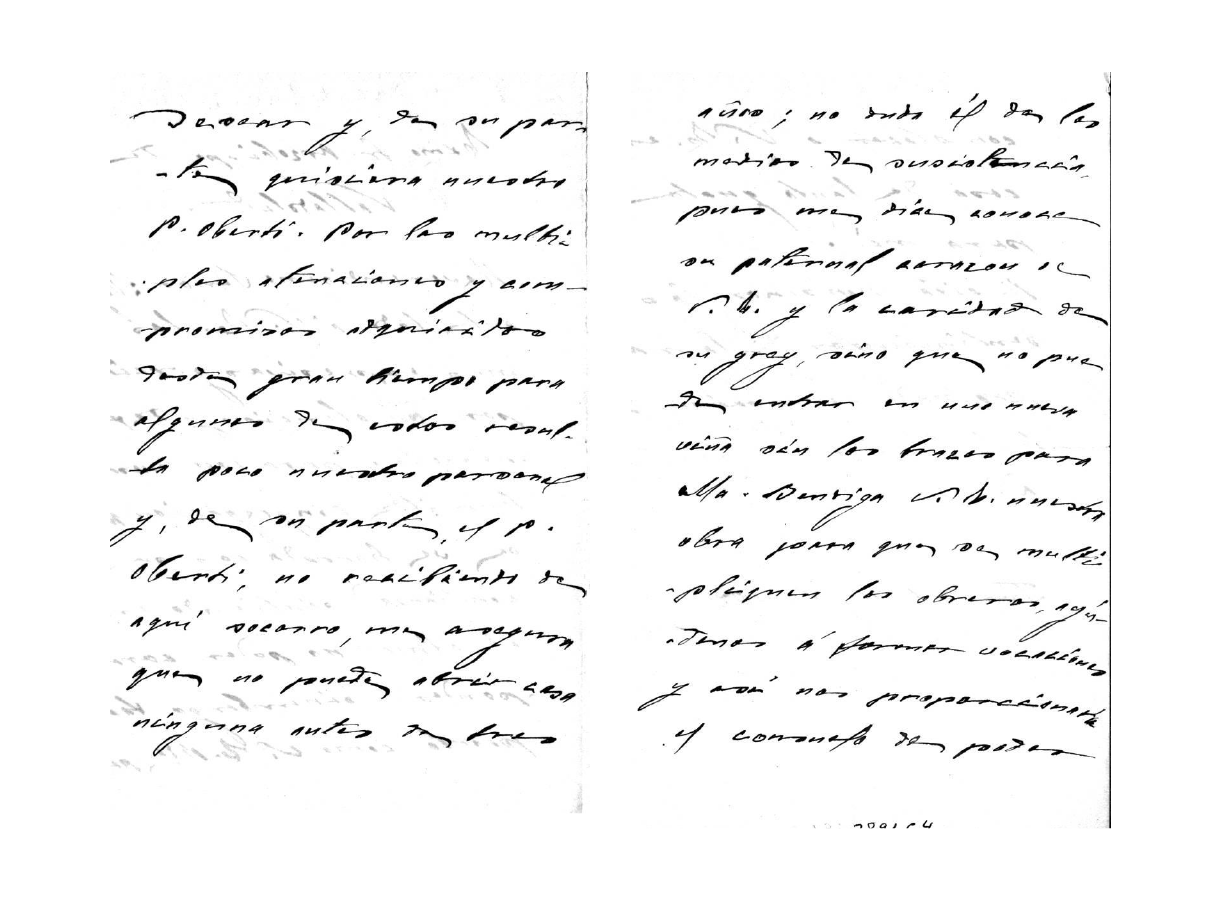 desear y, de su par-
-te, quisiera nuestro
P. Oberti. Por las multi-
-ples atenciones y com-
-promisos adquiridos
desde gran tiempo para
algunos de estos resul-
-ta poco nuestro personal
y, de su parte, el P.
Oberti, no recibiendo de
aquí socorro, me asegura
que no puede abrir casa
ninguna antes de tres
años; no duda él de los
medios de subsistencia,
pues me dice conoce
su paternal corazon de
V. E. y la caridad de
su grey, sino que no pue
-de entrar en una nueva
viña sin los brazos para
ella. Bendiga V. E. nuestra
obra para que se multi
-pliquen los obreros, ayú-
-denos á formar vocaciones
y así nos proporcionará
el consuelo de poder